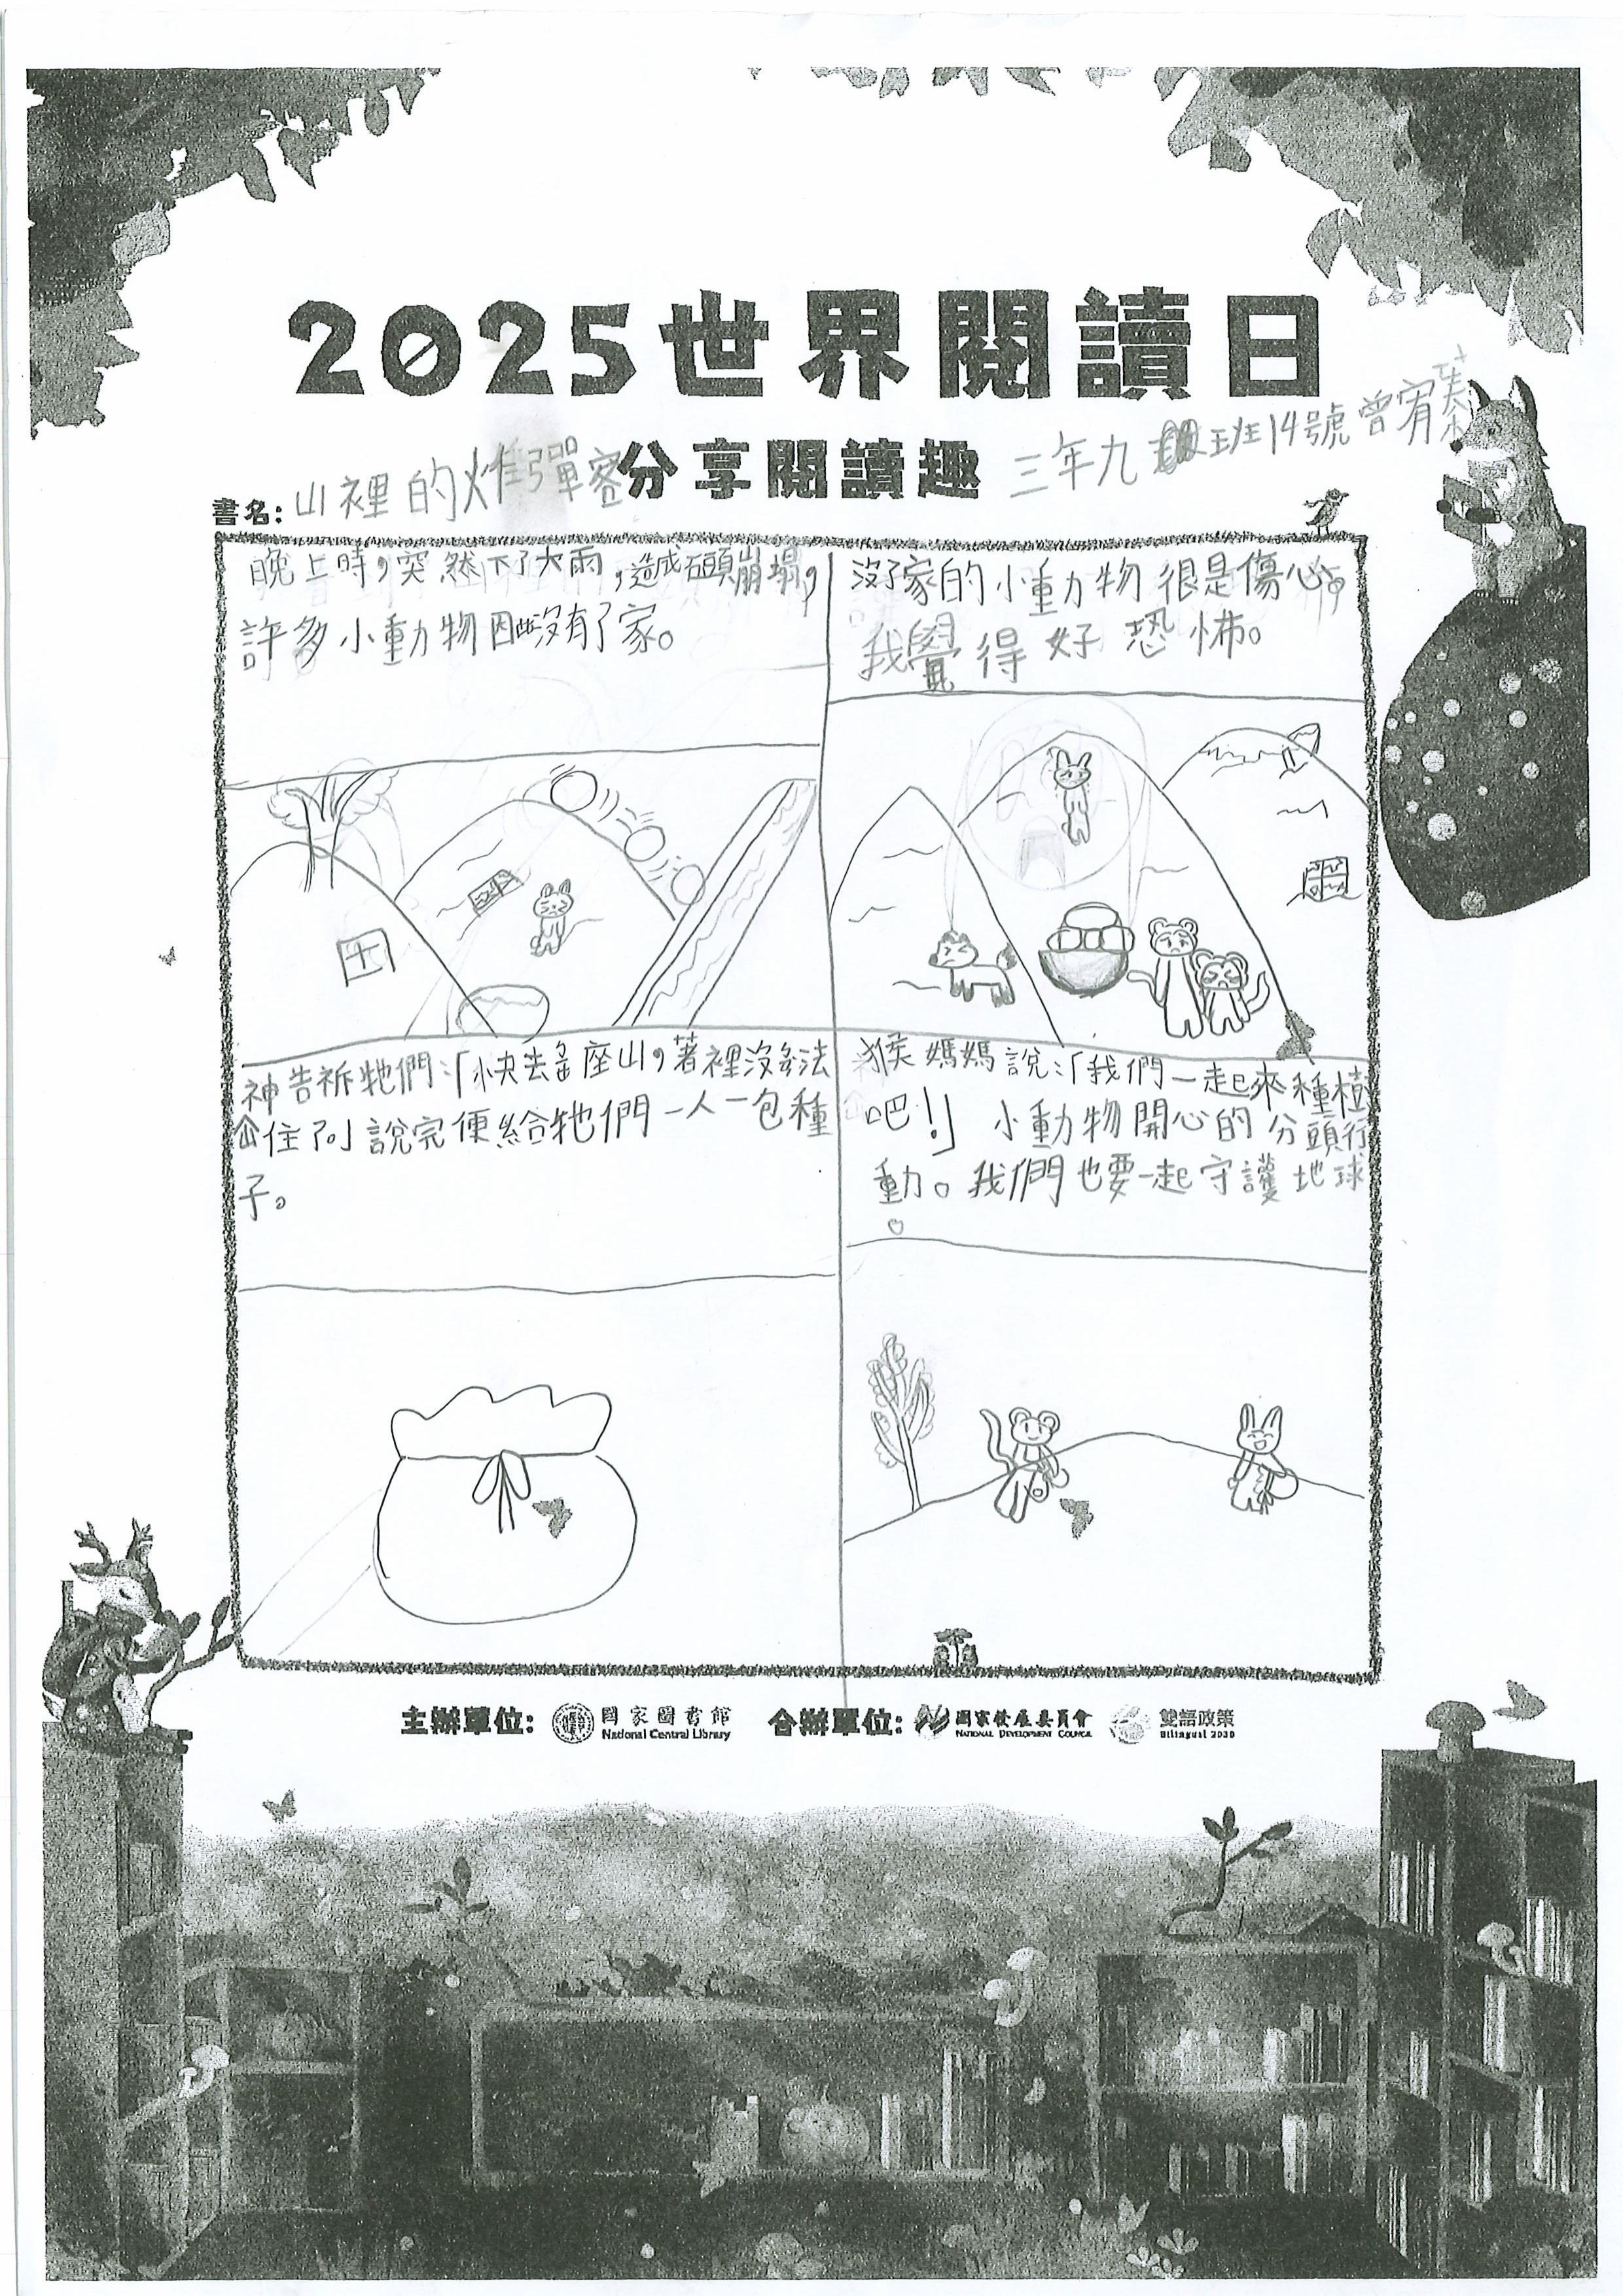 2025世界閱讀日
分享閱讀趣
三年九班14號曾宥蓁
書名:山裡的炸彈客
晚上時,突然下了大雨,造成石頭崩塌,
許多小動物因此沒有了家。
沒了家的小動物很是傷心。
我覺得好恐怖。
神告祈牠們:「快去座山,著裡沒辦法
住了。」說完便給牠們一人一包種
子。
猴媽媽說:「我們一起來種樹
吧!」小動物開心的分頭行
動。我們也要一起守護地球
。
主辦單位: 國家圖書館 合辦單位: 國家發展委員會 雙語政策
National Central Library NATIONAL DEVELOPMENT COUNCIL Bilingual 2030